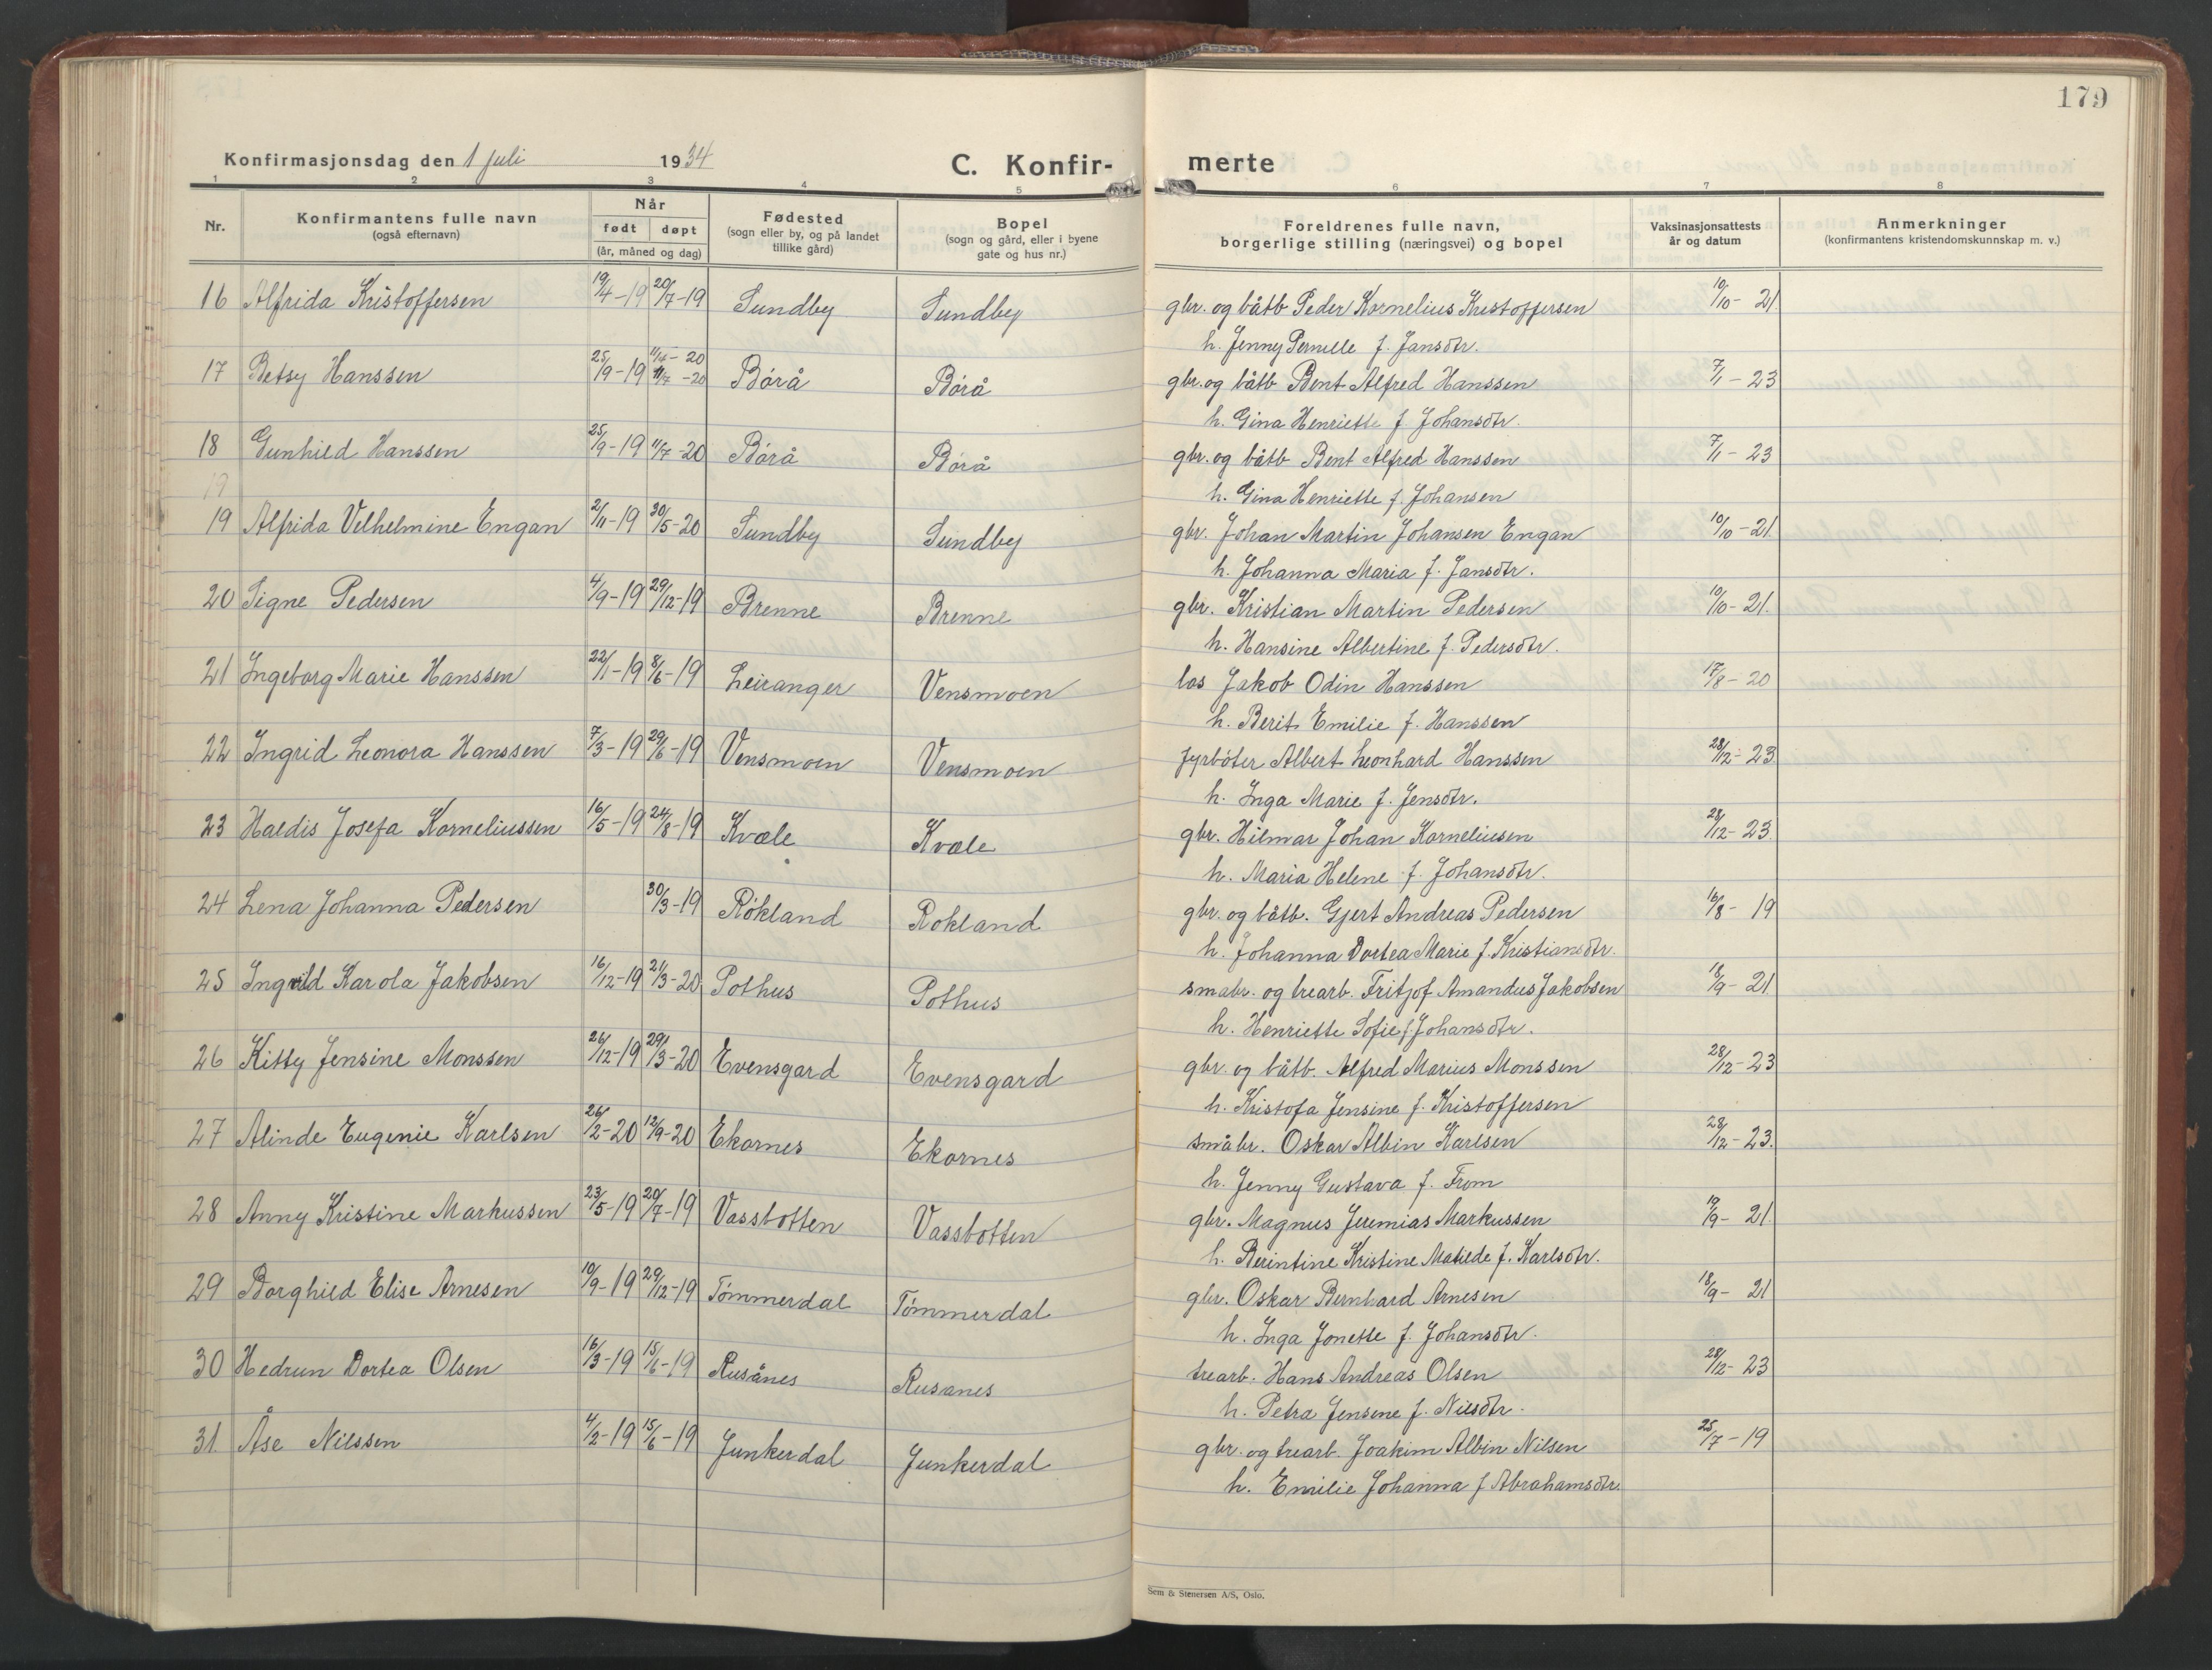 179
Konfirmasjonsdag den 1 juli 1934 C. Konfir- merte
1 2 3 4 5 6 7 8
Nr. Konfirmantens fulle navn (også efternavn) Når født døpt (år, måned og dag) Fødested (sogn eller by, og på landet tillike gård) Bopel (sogn og gård, eller i byene gate og hus nr.) Foreldrenes fulle navn, borgerlige stilling (næringsvei) og bopel Vaksinasjonsattests år og datum Anmerkninger (konfirmantens kristendomskunnskap m. v.)
16 Alfrida Kristoffersen 19/4-19 20/7-19 Sundby Sundby gbr. og båtb Peder Kornelius Kristoffersen 10/10-21
h. Jenny Pernille f. Jansdtr.
17 Betsy Hanssen 25/9-19 11/4-20 11/7-20 Børå Børå gbr. og båtb Bent Alfred Hanssen 7/1-23
h. Gina Henriette f Johansdtr.
18 Gunhild Hanssen 25/9-19 11/7-20 Børå Børå gbr. og båtb Bent Alfred Hanssen 7/1-23
19 h. Gina Henriette f. Johansen
19 Alfrida Vilhelmine Engan 2/11-19 30/5-20 Sundby Sundby gbr. Johan Martin Johansen Engan 10/10-21.
h. Johanna Maria f. Jansdtr.
20 Signe Pedersen 4/9-19 29/12-19 Brenne Brenne gbr. Kristian Martin Pedersen 10/10-21.
h. Hansine Albertine f. Pedersdtr.
21 Ingeborg Marie Hanssen 22/1-19 8/6-19 Leiranger Vensmoen los Jakob Odin Hanssen 17/8-20
h. Berit Emilie f. Hanssen
22 Ingrid Leonora Hanssen 7/3-19 29/6-19 Vensmoen Vensmoen fyrbøter Albert Leonhard Hanssen 28/12-23
h. Inga Marie f. Jensdtr.
23 Haldis Josefa Korneliussen 16/5-19 24/8-19 Kvæle Kvæle gbr. Hilmar Johan Korneliusen 28/12-23
h. Maria Helene f. Johansdtr.
24 Lena Johanna Pedersen 30/3-19 Røkland Røkland gbr. og båtb. Gjert Andreas Pedersen 16/8-19
h. Johanna Dortea Marie f. Kristiansdtr.
25 Ingvild Karola Jakobsen 16/12-19 21/3-20 Pothus Pothus småbr. og trearb. Fritjof Amandus Jakobsen 18/9-21
h. Henriette Sofie f Johansdtr.
26 Kitty Jensine Monssen 26/12-19 29/3-20 Evensgard Evensgard gbr. og båtb. Alfred Marius Monssen 28/12-23
h. Kristofa Jensine f. Kristoffersen
27 Alinde Eugenie Karlsen 26/2-20 12/9-20 Ekornes Ekornes småbr. Oskar Albin Karlsen 28/12-23.
h. Jenny Gustava f. From
28 Anny Kristine Markussen 23/5-19 20/7-19 Vassbotten Vassbotten gbr. Magnus Jeremias Markussen 19/9-21.
h. Berintine Kristine Matilde f. Karlsdtr.
29 Borghild Elise Arnesen 10/9-19 29/12-19 Tømmerdal Tømmerdal gbr. Oskar Bernhard Arnesen 18/9-21
h. Inga Jonette f. Johansdtr.
30 Hedrun Dortea Olsen 16/3-19 15/6-19 Rusånes Rusånes trearb. Hans Andreas Olsen 28/12-23
h. Petra Jensine f. Nilsdtr.
31 Åse Nilssen 4/2-19 15/6-19 Junkerdal Junkerdal gbr. og trearb. Joakim Albin Nilsen 25/7-19
h. Emilie Johanna f Abrahamsdtr.
Sem & Stenersen A/S, Oslo.